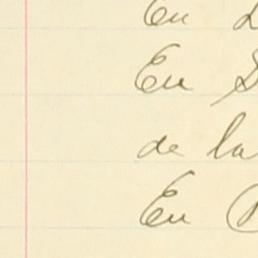 En
En
de la
En